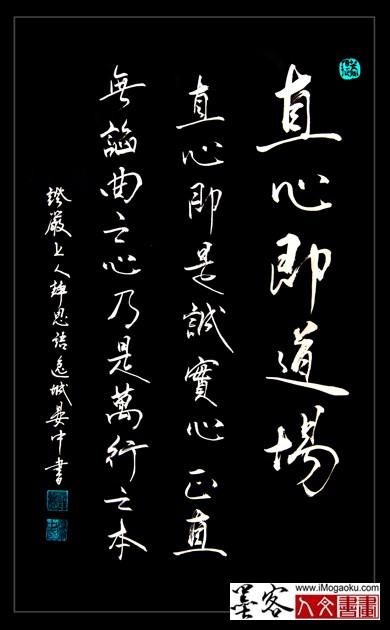 直心即道場
直心即是誠實心正直
無諂曲之心乃是萬行之本
證嚴上人靜思語 逸城晏中書
墨客
www.iMogaoku.com
人文書畫